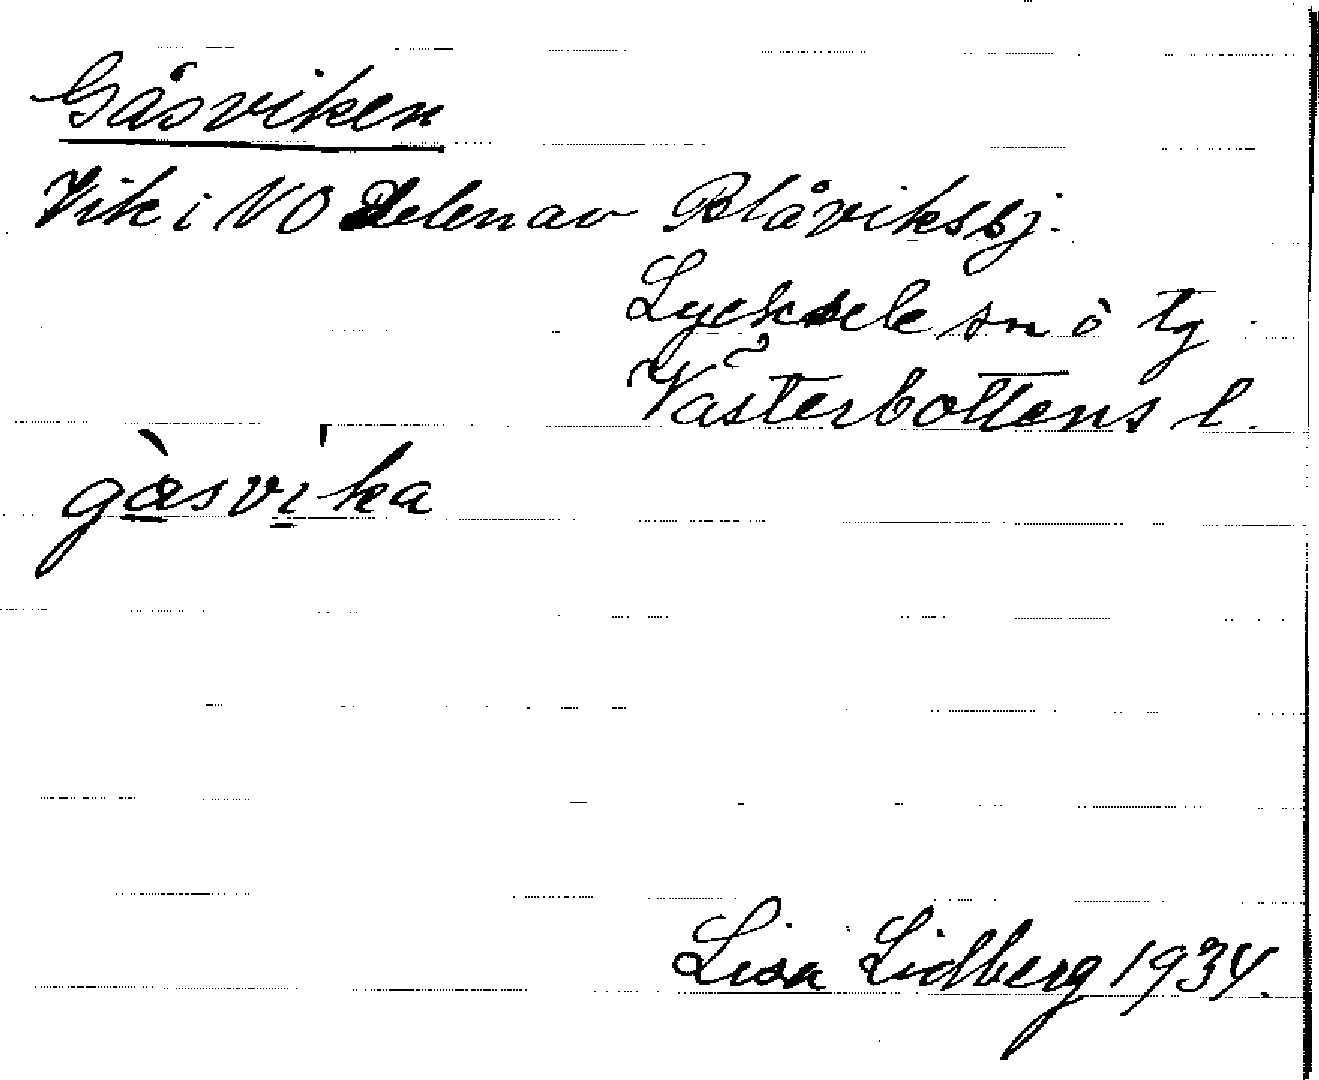 Gåsviken
Vik i NO delen av Blåvikssj.
Lycksele sn ö tg
Västerbottens l.
gàsvi̍ka
Lisa Lidberg 1934.